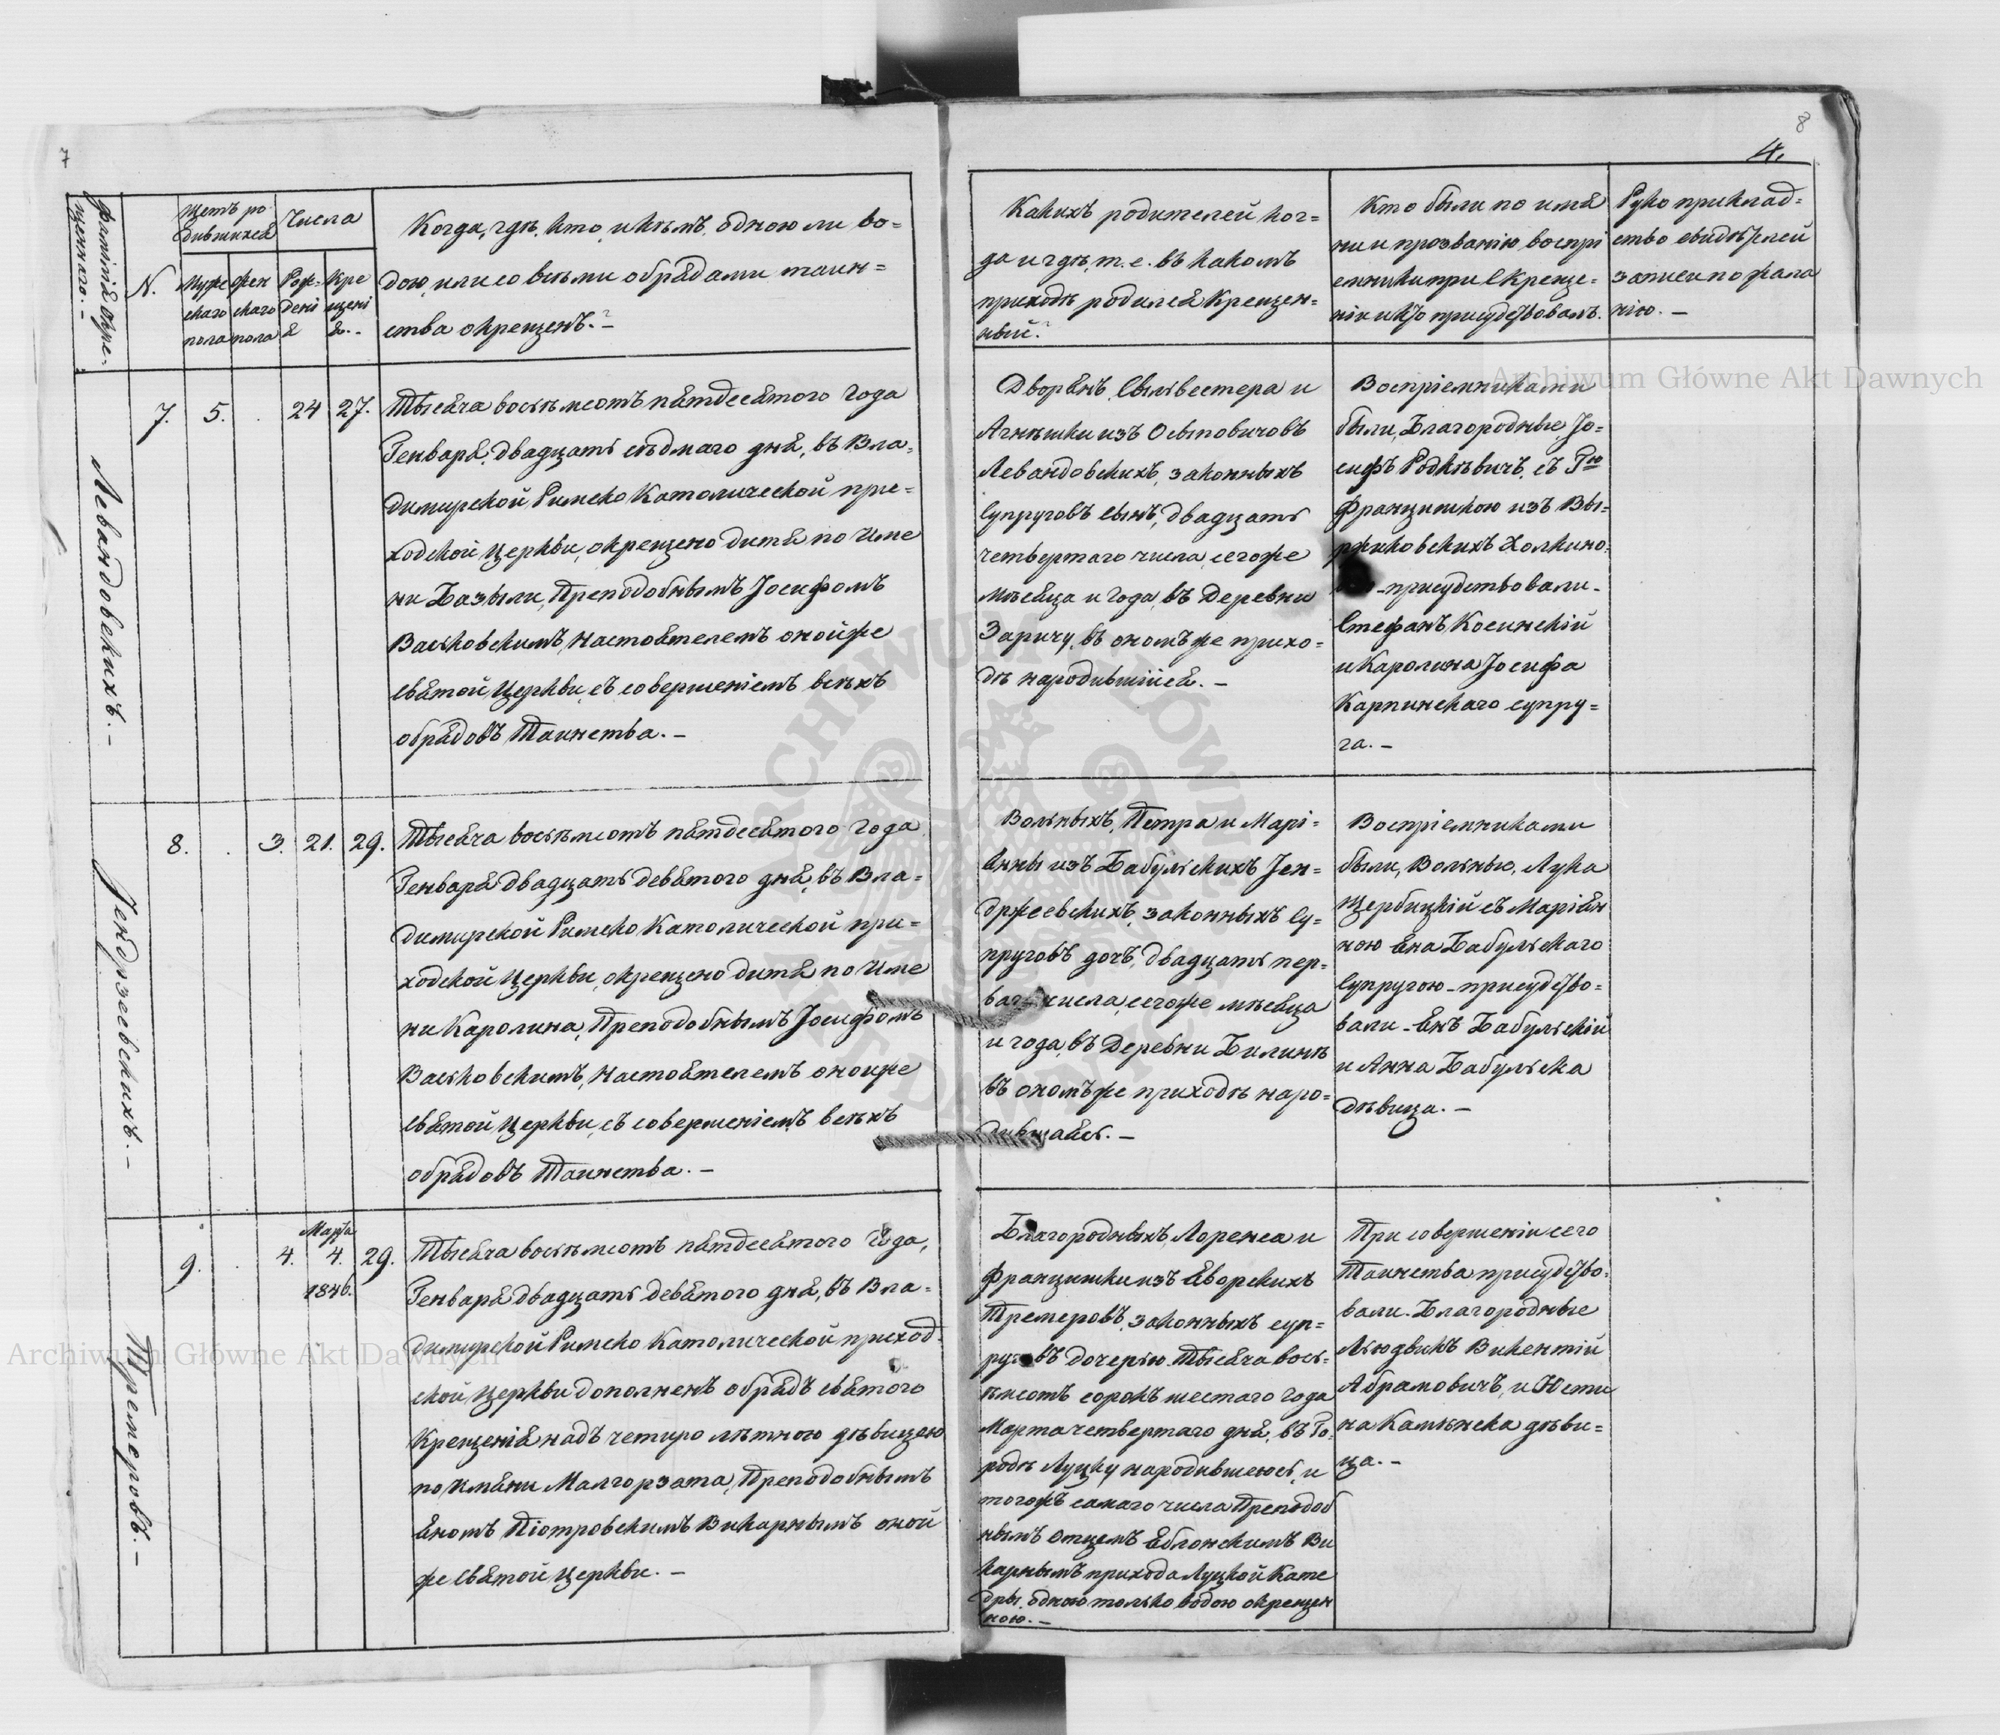 7
8
4.
Фамилія окре-
щеннаго. -
N.
Щетъ ро-
дившихся
Числа
Муже
скаго
пола
жен
скаго
пола
Рож-
дені
я
Кре
щені
я. -
Когда, гдѣ, кто, и кѣмъ, одною ли во-
дою, или со всѣми обрядами таин-
ства окрещенъ. -
Какихъ родителей ког-
да и гдѣ, т. е. въ какомъ
приходѣ родился Крещен-
ный?
Кто были по имя
ни и прозванію воспрі
емники при Скреще-
ніи и кто присудствовалъ.
Руко приклад-
ство свидѣтелей
записи по жела
нію. -
Левандовскихъ. -
7. 5. . 24 27.
Тысяча восѣмсотъ пятдесятого года
Генваря, двадцать сѣдмаго дня, въ Вла-
димирской Римско Католической при-
ходской Церкви, окрещено дитя по име
ни Базыли, Преподобнымъ Іосифомъ
Васьковскимъ, настоятелемъ онойже
святой Церкви, съ совершеніемъ всѣхъ
обрядовъ Таинства. -
Дворянъ, Сыльвестера и
Агнѣшки изъ Осыповичовъ
Левандовскихъ, законныхъ
Супруговъ сынъ, двадцать
четвертаго числа, сегоже
мѣсяца и года, въ Деревни
Заричу, въ ономъже прихо-
дѣ народившійся. -
Воспріемниками
были, Благородные, Іо-
сифъ Родкѣвичъ, съ Гю
Францишкою изъ Вы-
ржиковскихъ Холкино-
- присудствовали -
Стефанъ Косинскій
и Каролина Іосифа
Карпинскаго супру-
га. -
Іендрзеевскихъ. -
8. . 3. 21. 29.
Тысяча восѣмсотъ пятдесятого года
Генваря двадцать девятого дня, въ Вла-
димирской Римско Католической при-
ходской Церкви, окрещено дитя по име
ни Каролина, Преподобнымъ Іосифомъ
Васьковскимъ, настоятелемъ онойже
святой Церкви, съ совершеніемъ всѣхъ
обрядовъ Таинства. -
Вольныхъ, Петра и Марі-
янны изъ Бабульскихъ Іен-
држеевскихъ, законныхъ Су-
пруговъ дочъ, двадцать пер-
ваго числа, сегоже мѣсяца
и года, въ Деревни Билинѣ
въ ономъже приходѣ наро-
дившаясъ. -
Воспріемниками
были, Вольные, Лука
Щербицкій съ Маріян
ною Яна Бабульскаго
Супругою - присудство-
вали - Янъ Бабульскій
и Анна Бабульска
дѣвица. -
Тремеровъ. -
9. . 4. Марта 4. 1846. 29.
Тысяча восѣмсотъ пятдесятого года,
Генваря двадцать девятого дня, въ Вла-
димирской Римско Католической приход-
ской Церкви дополненъ обрядъ святого
Крещенія надъ четиро лѣтною дѣвицею
по имяни Малгорзата, Преподобнымъ
Яномъ Піотровскимъ Викарнымъ оной
же святой Церкви. -
Благородныхъ, Лоренса и
Францишки изъ Яворскихъ
Тремеровъ, законныхъ суп-
руговъ дочерью. Тысяча вось-
ѣмсотъ сорокъ шестаго года
Марта четвертаго дня, въ Го-
родѣ Луцку народившеюсъ, и
тогожъ самаго числа Преподоб
нымъ Отцемъ Яблонскимъ Ви
карнымъ прихода Луцкой Кате
дры одною только водою окрещен
ною. -
При совершеніи сего
Таинства присудство-
вали. Благородные
Людвикъ Викентій
Абрамовичъ, и Юсти
на Каминска дѣви-
ца. -
Archiwum Główne Akt Dawnych
Archiwum Główne Akt Dawnych
ARCHIWUM GŁÓWNE AKT DAWNYCH